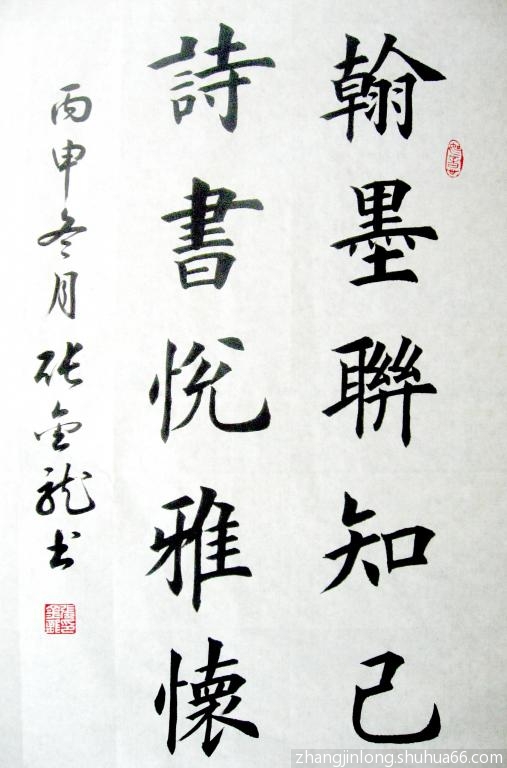 翰墨聯知己
詩書悅雅懷
丙申冬月張金龍书
zhangjinlong.shuhua66.com